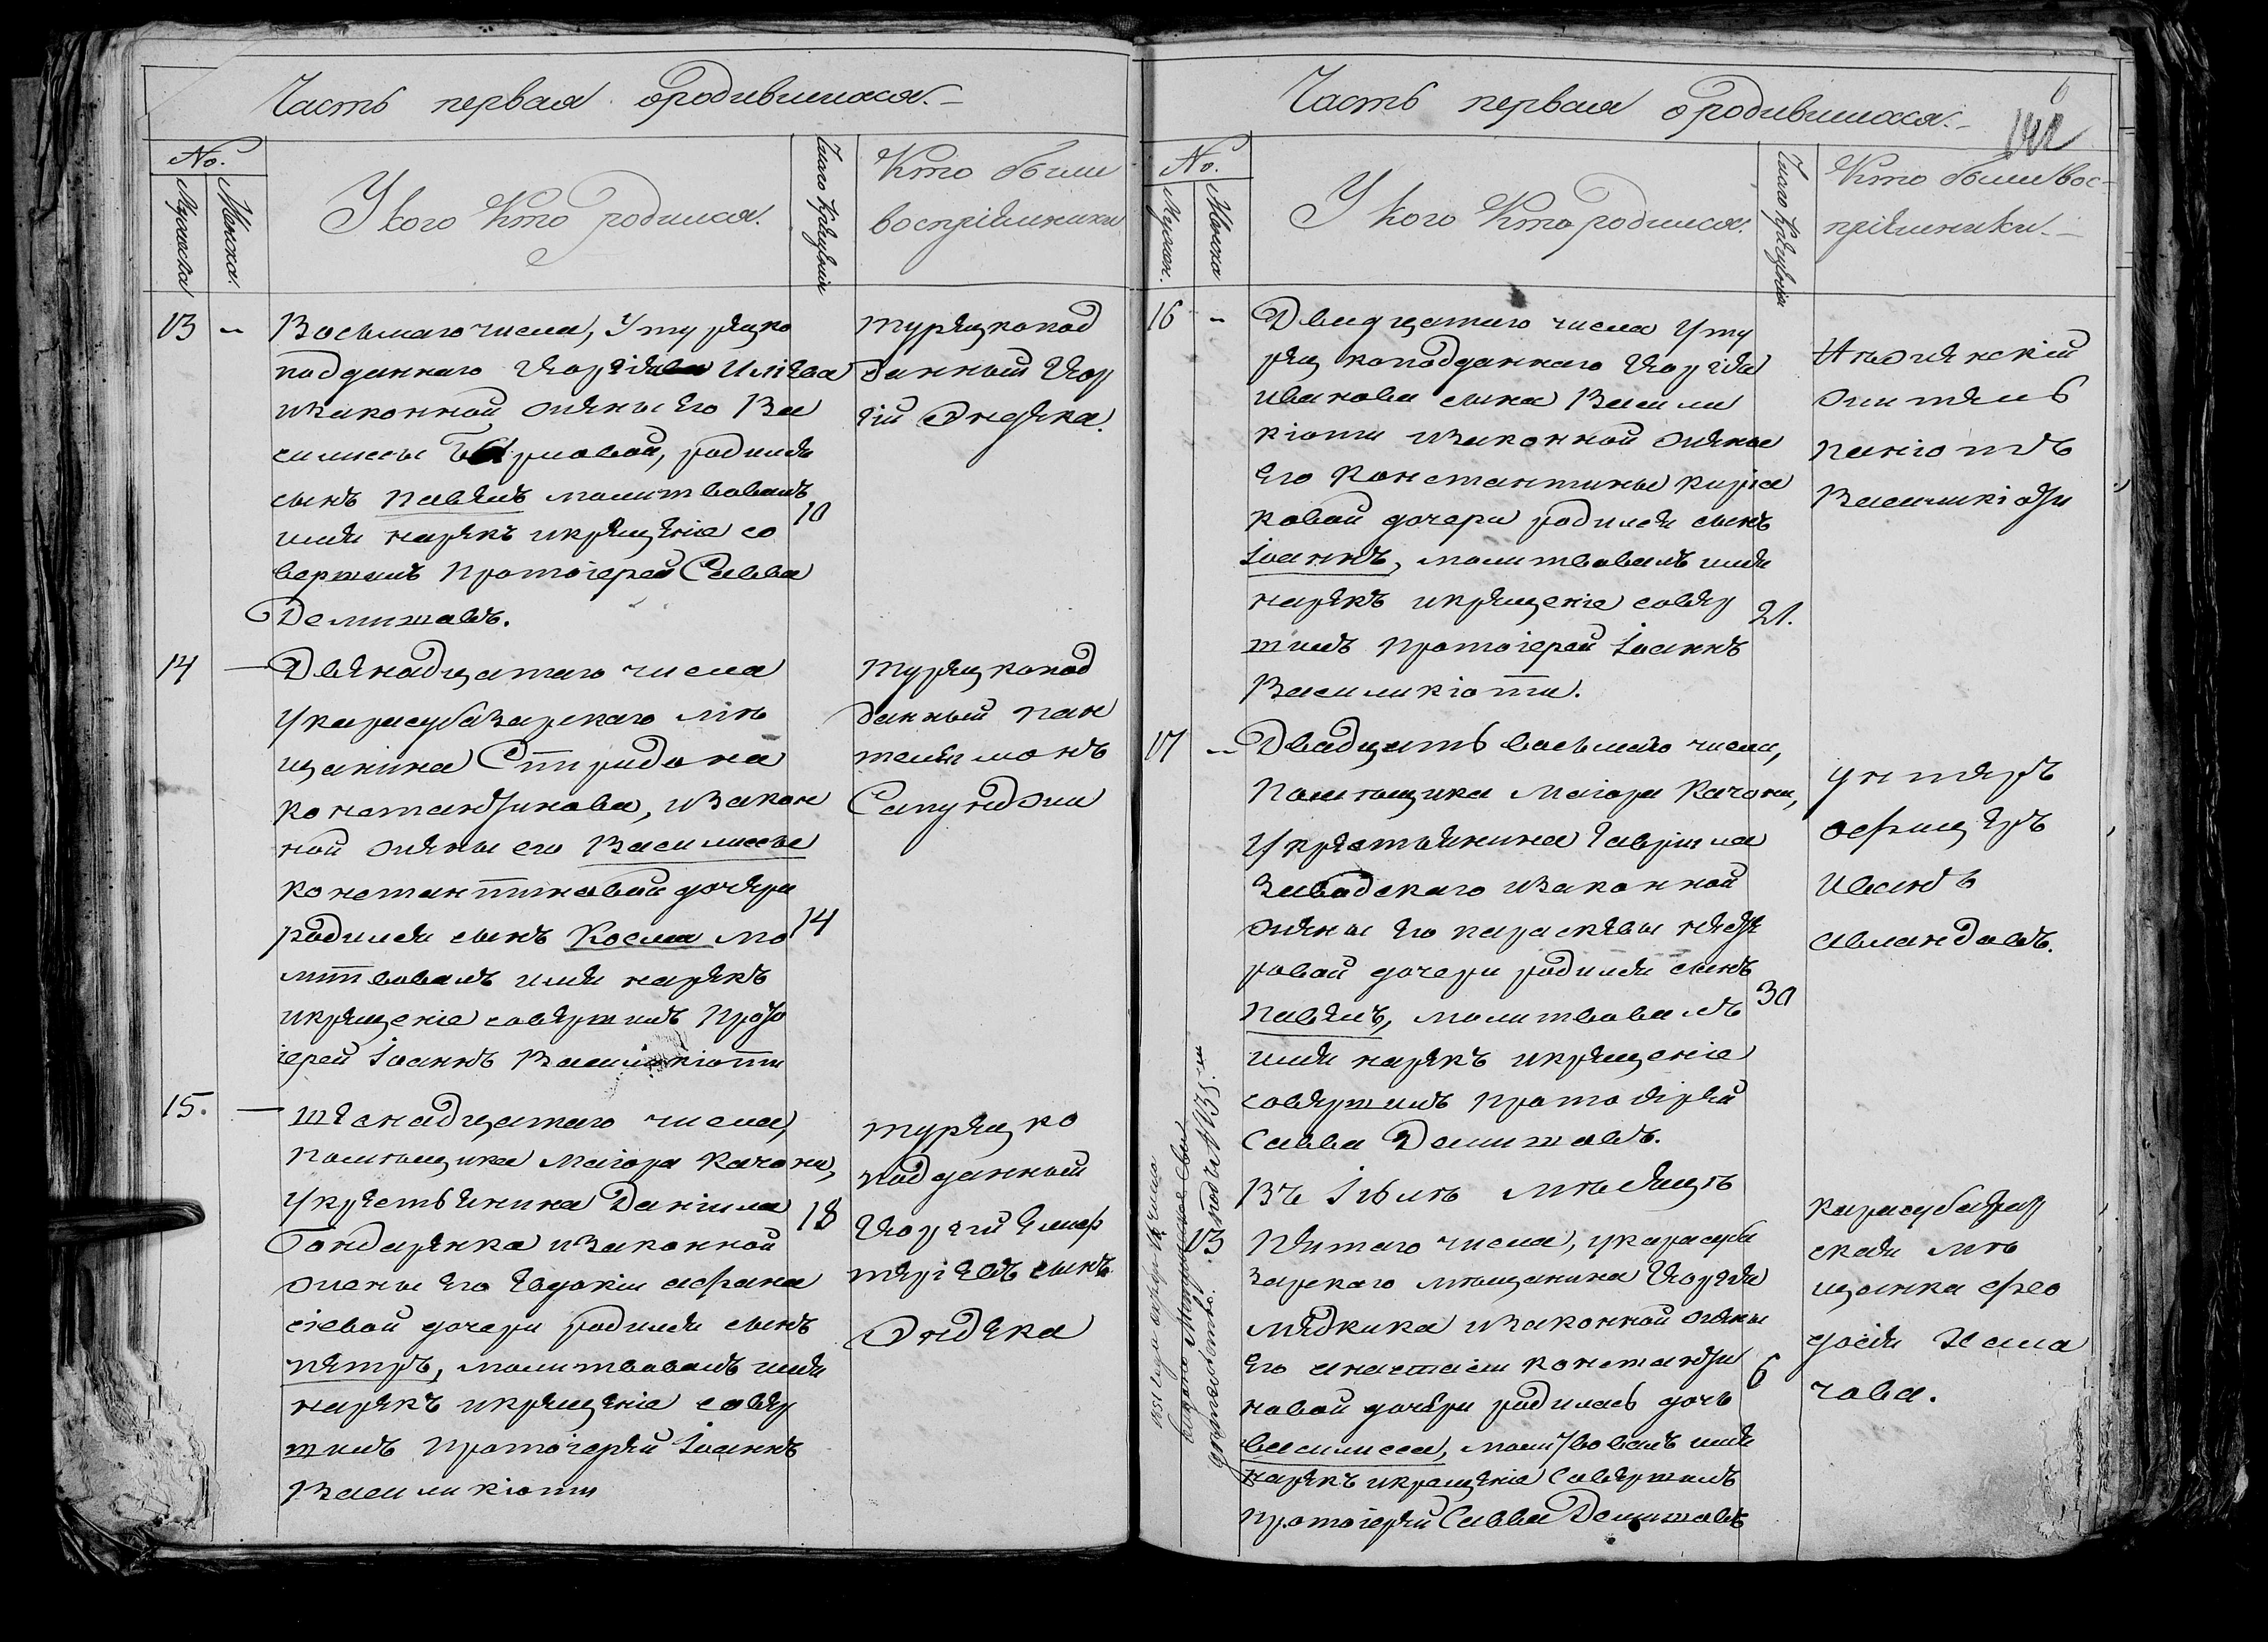 Часть первая ородившихся.
No.
Мужеска
Женска.
У кого Кто родился.
Число Крещенія
Кто были
воспріемники
13 - Восьмаго числа, У турецко
подданнаго Георгія Иліева
изаконной жены Его Ва
силиссы родился
сынъ Павелъ молитвовалъ
10
имя нарекъ икрещеніе со
вершилъ Протоіерей Савва
Делижовъ.
турецкопод
данный Геор
гій Эндека.
14 - Двенадцатаго числа
укарасубазарскаго мѣ
щанина Спиридона
константинова, изакон
ной жены его Василиссы
константиновой дочери
родился сынъ Косма мо
14
литвовалъ имя нарекъ
икрещеніе совершилъ Прото
іерей Іоаннъ Василикіоти
турецкопод
данный пан
телеімонъ
Сапунджи
15. - шеснадцатаго числа,
помѣщика Маіора Качони,
укрестьянина Даніила
18
Бондаренка изаконной
жены Его Евдокіи афана
сіевой дочери родился сынъ
петръ, молитвовалъ имя
нарекъ икрещеніе совер
шилъ протоіерей Іоаннъ
Василикіоти
турецко
подданный
Георгій
сынъ
Эндека
Часть первая ородившихся.
No.
Мужеск.
Женска
У кого Кто родился.
Число Крещенія
Кто были вос-
пріемники.
16 - Двадцатаго числа у ту
рецкоподданнаго Георгія
иванова сына Васили
кіоти изаконной жены
Его Константины кирія
ковой дочери родился сынъ
Іоаннъ, молитвовалъ имя
нарекъ икрещеніе совер
21.
шилъ протоіерей Іоаннъ
Василикіоти.
Нѣжинскій
житель
паніотъ
Василикіоти
17 - Двадцать восьмаго числа,
Помѣщика Маіора Качони,
укрестьянина Гавріила
Завадскаго изаконной
жены Его параскевы
ровой дочери родился сынъ
павелъ, молитвовалъ
30
имя нарекъ икрещеніе
совершилъ протоіерей
Савва Делижовъ.
унтеръ
офицеръ
Иванъ
Въ Іюлѣ мѣсяцѣ
13 Пятаго числа, укарасуба
зарскаго мѣщанина Георгія
изаконной жены
Его анастасіи константи
6
новой дочери родилась дочь
василисса, молитвовалъ имя
нарекъ икрещеніе Совершилъ
протоіерей Савва Делижовъ
карасубазар
ская мѣ
щанка Фео
досія
чова.